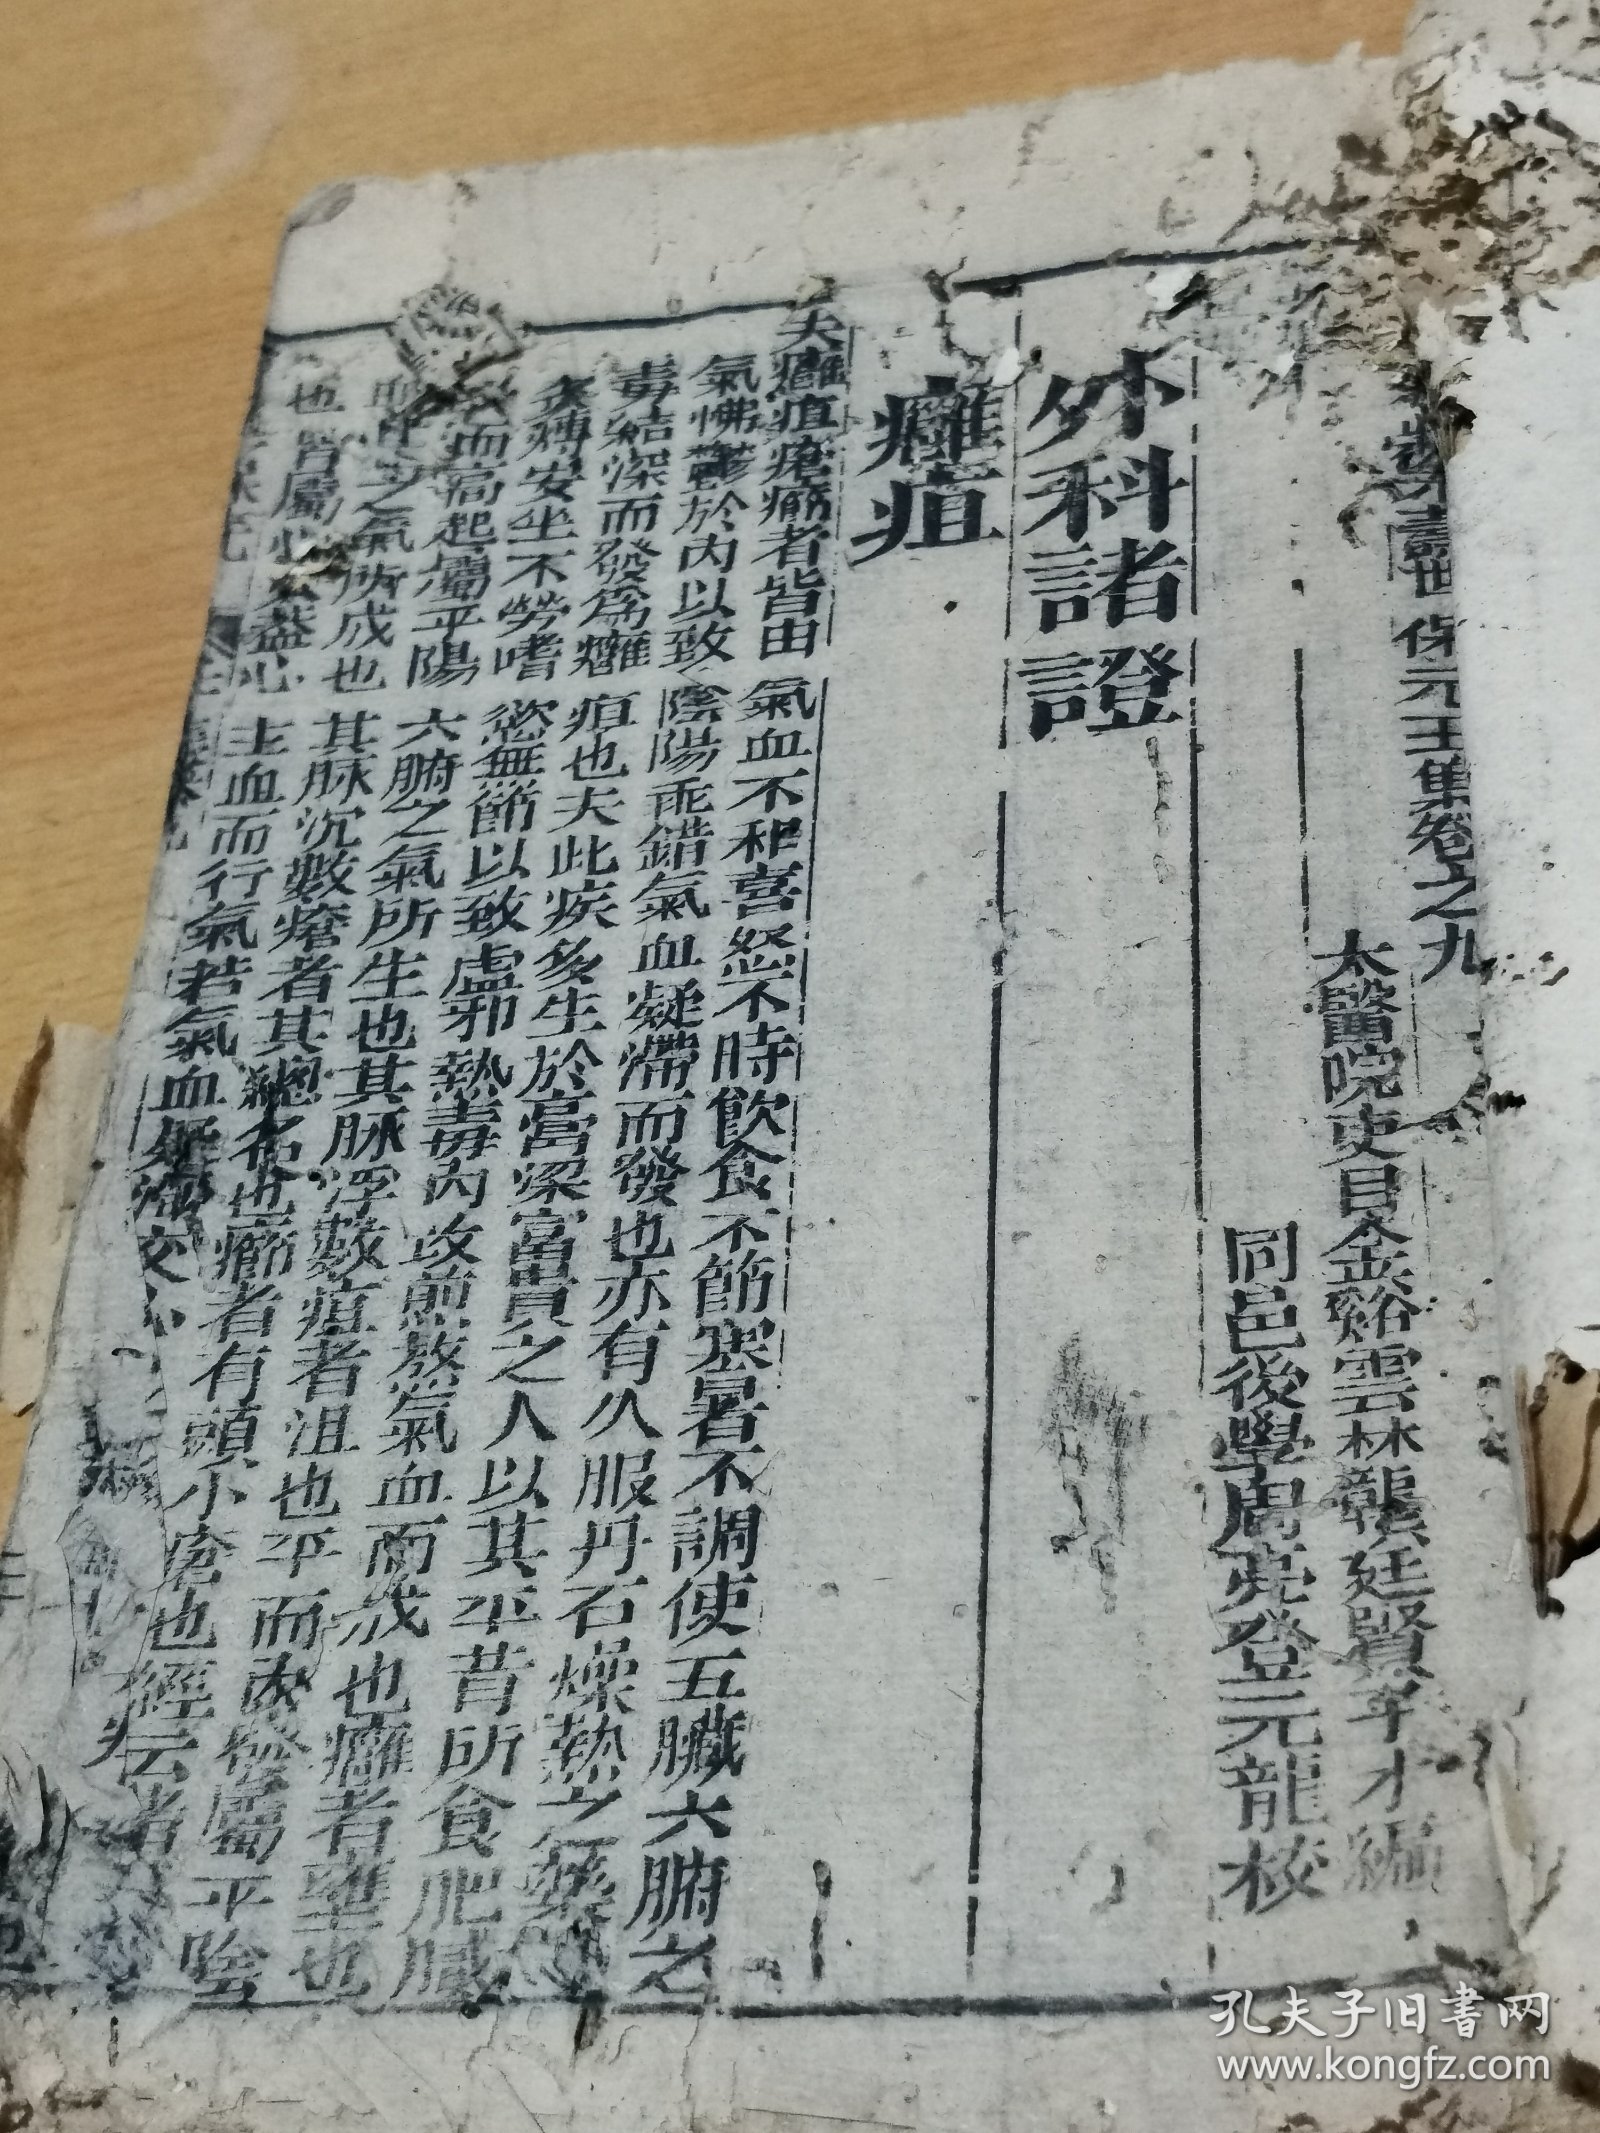 壽世保元壬集卷之九
太醫院吏目金谿雲林龔廷賢子才編
同邑後學周亮登元龍校
外科諸證
癰疽
夫癰疽瘡癤者皆由氣血不和喜怒不時飲食不節寒暑不調使五臟六腑之
氣怫鬱於內以致陰陽乖錯氣血凝滯而發也亦有久服丹石燥熱之藥
毒結深而發為癰疽也夫此疾多生於膏粱富貴之人以其平昔所食肥膩
炙煿安坐不勞嗜慾無節以致虛邪熱毒內攻煎熬氣血而成也癰者壅也
而高起屬平陽六腑之氣所生也其脉浮數疽者沮也平而內發屬平陰
之氣所成也其脉沉數瘡者其總名也癤者有頭小瘡也經云
也皆屬心火蓋心主血而行氣若氣血
孔夫子旧书网
www.kongfz.com